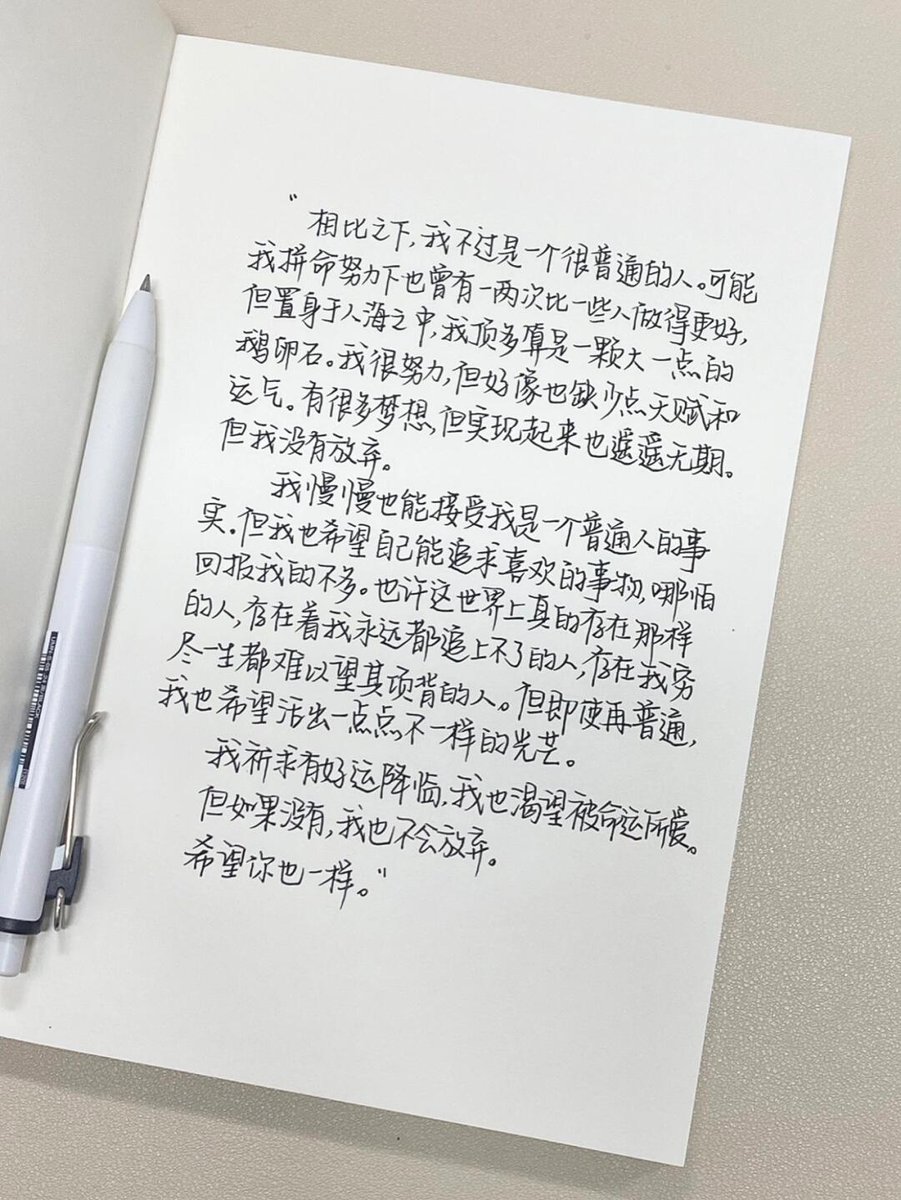 “相比之下,我不过是一个很普通的人。可能
我拼命努力下也曾有一两次比一些人做得更好,
但置身于人海之中,我顶多算是一颗大一点的
鹅卵石。我很努力,但好像也缺少点天赋和
运气。有很多梦想,但实现起来也遥遥无期。
但我没有放弃。
我慢慢也能接受我是一个普通人的事
实.但我也希望自己能追求喜欢的事物,哪怕
回报我的不多。也许这世界上真的存在那样
的人,存在着我永远都追上不了的人,存在我穷
尽一生都难以望其项背的人。但即使再普通,
我也希望活出一点点不一样的光芒。
我祈求有好运降临,我也渴望被命运所爱。
但如果没有,我也不会放弃。
希望你也一样。”